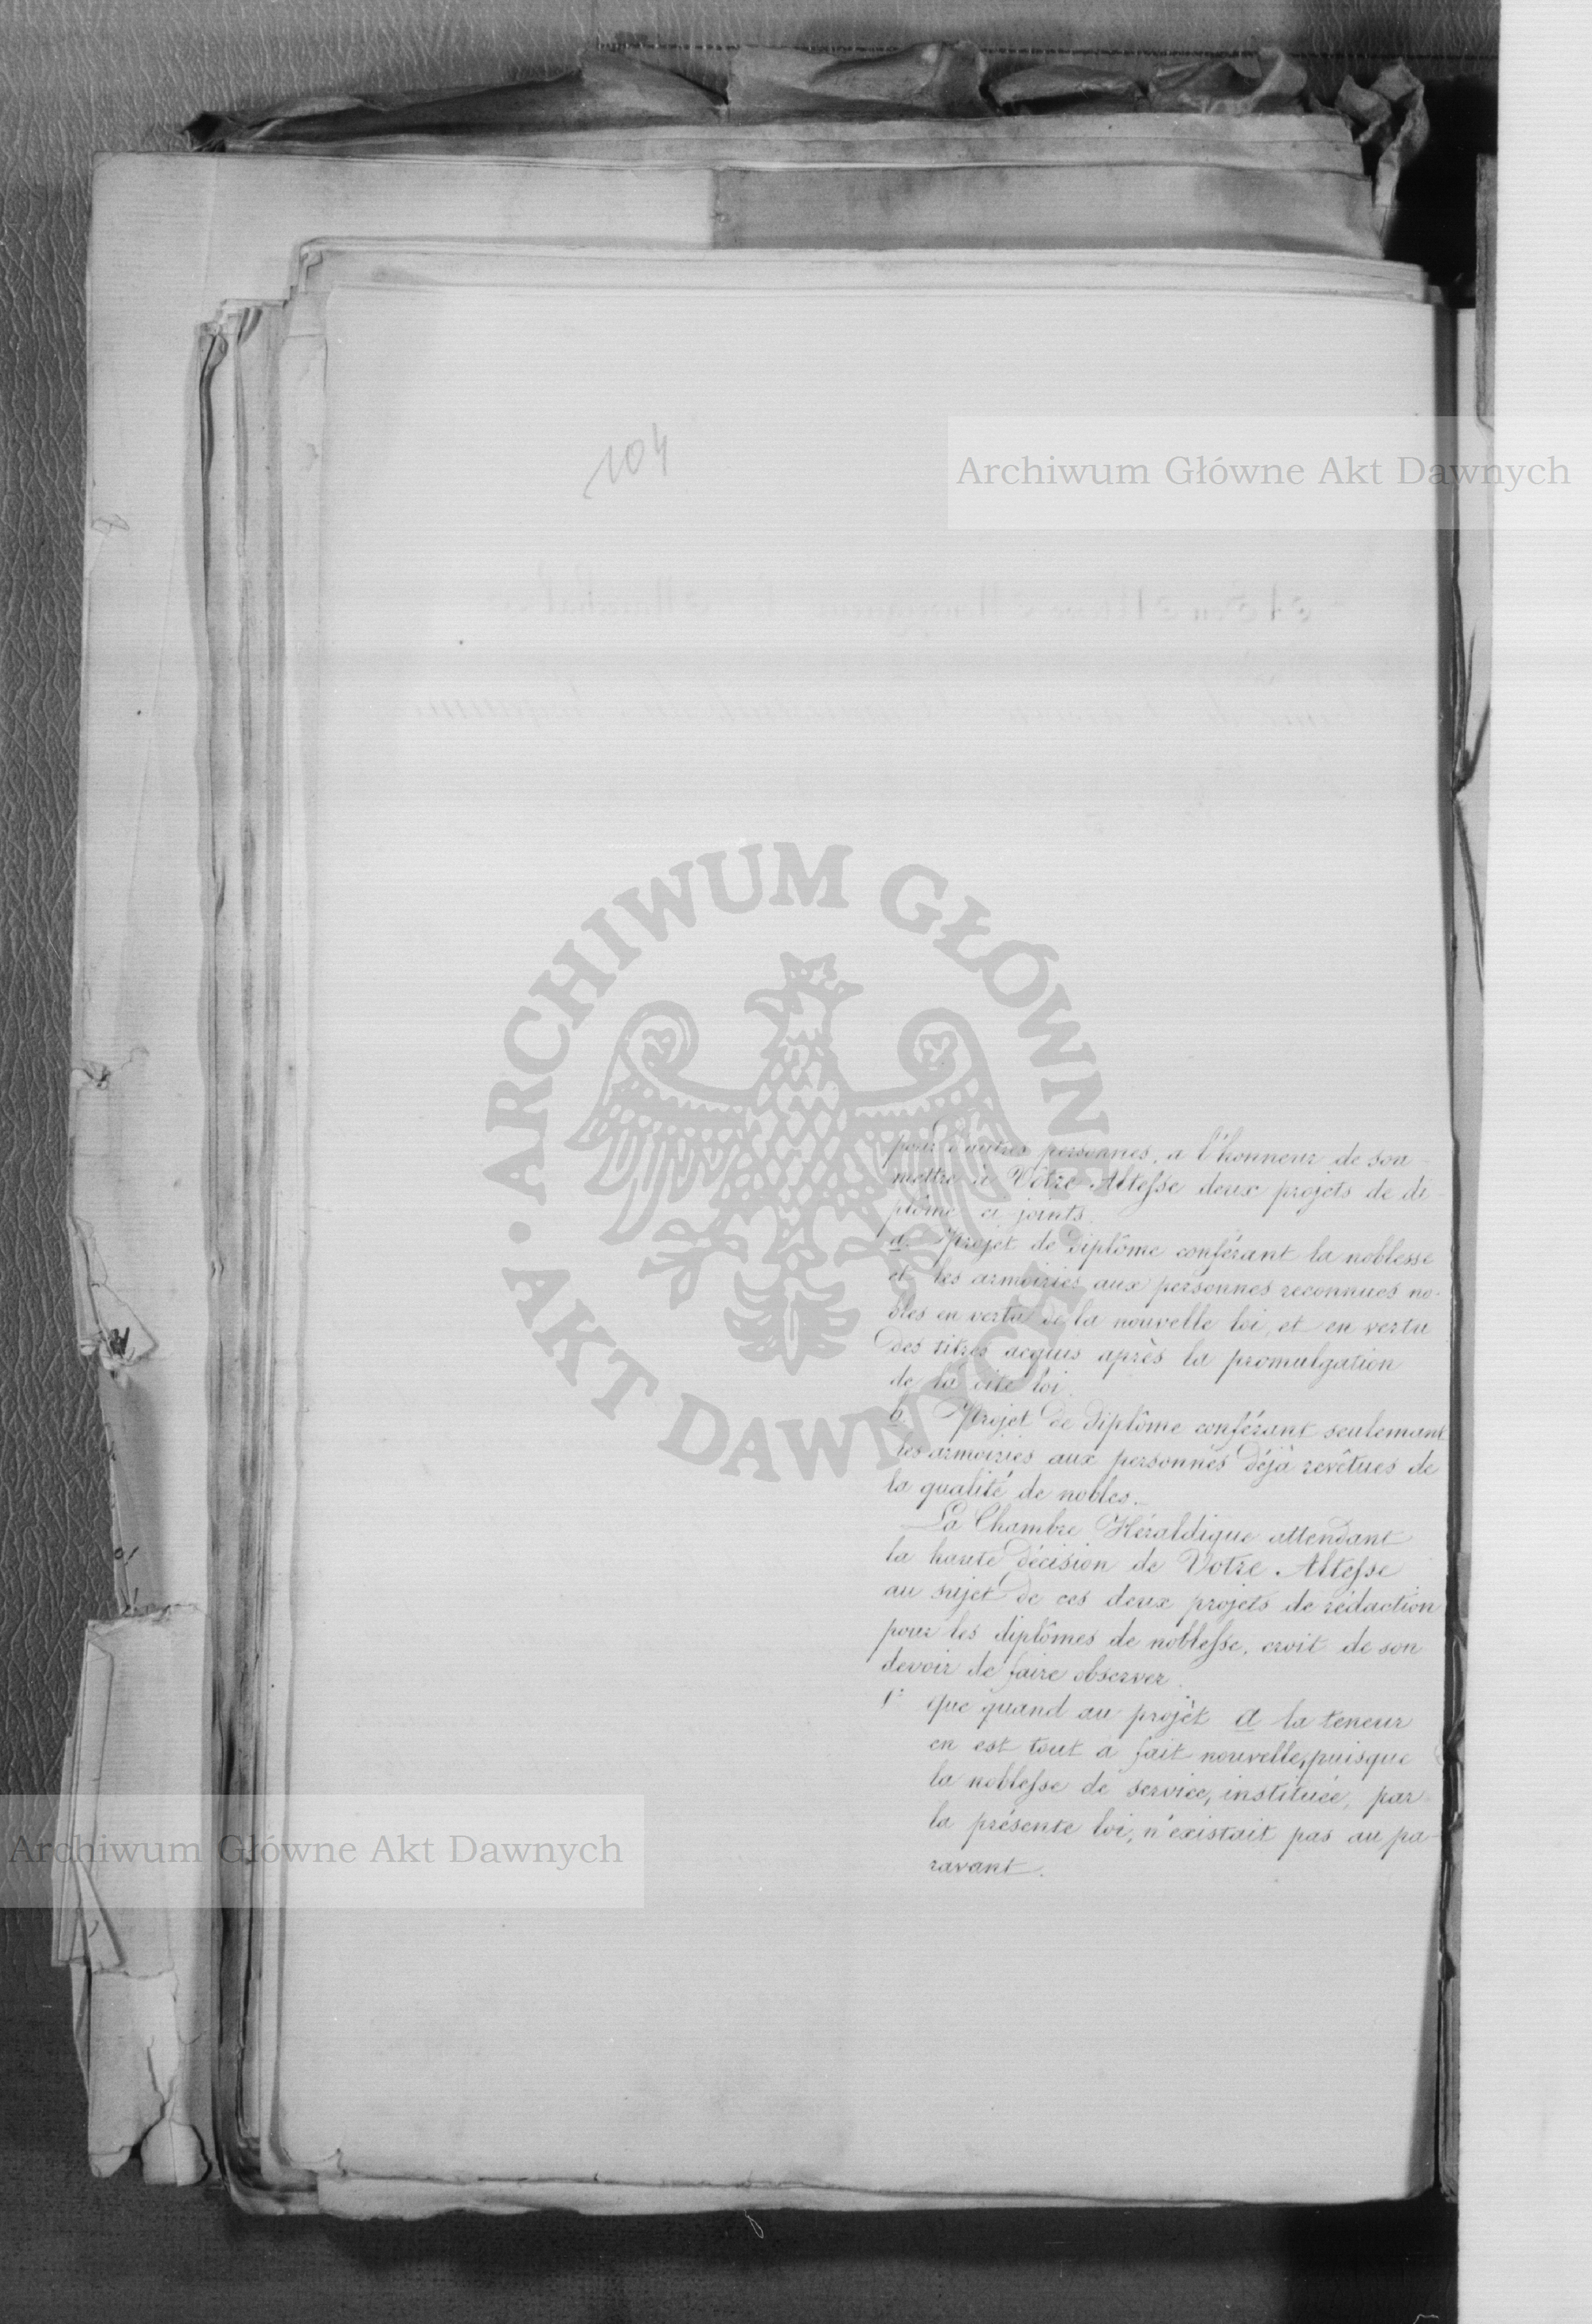 104
Archiwum Główne Akt Dawnych
ARCHIWUM GŁÓWNE • AKT DAWNYCH •
pour d'autres personnes, a l'honneur de sou-
mettre à Votre Altesse deux projets de di
plôme ci-joints.
a. Projet de diplôme conférant la noblesse
et les armoiries aux personnes reconnues no-
bles en vertu de la nouvelle loi, et en vertu
des titres acquis après la promulgation
de la cite loi.
b. Projet de diplôme conférant seulemant
les armoiries aux personnes déjà revêtues de
la qualité de nobles.
La Chambre Héraldique attendant
la haute décision de Votre Altesse
au sujet de ces deux projets de rédaction
pour les diplômes de noblesse, croit de son
devoir de faire observer.
1° que quand au projèt a la teneur
en est tout a fait nouvelle, puisque
la noblesse de service, instituée, par
la présente loi, n'existait pas au pa-
ravant.
Archiwum Główne Akt Dawnych